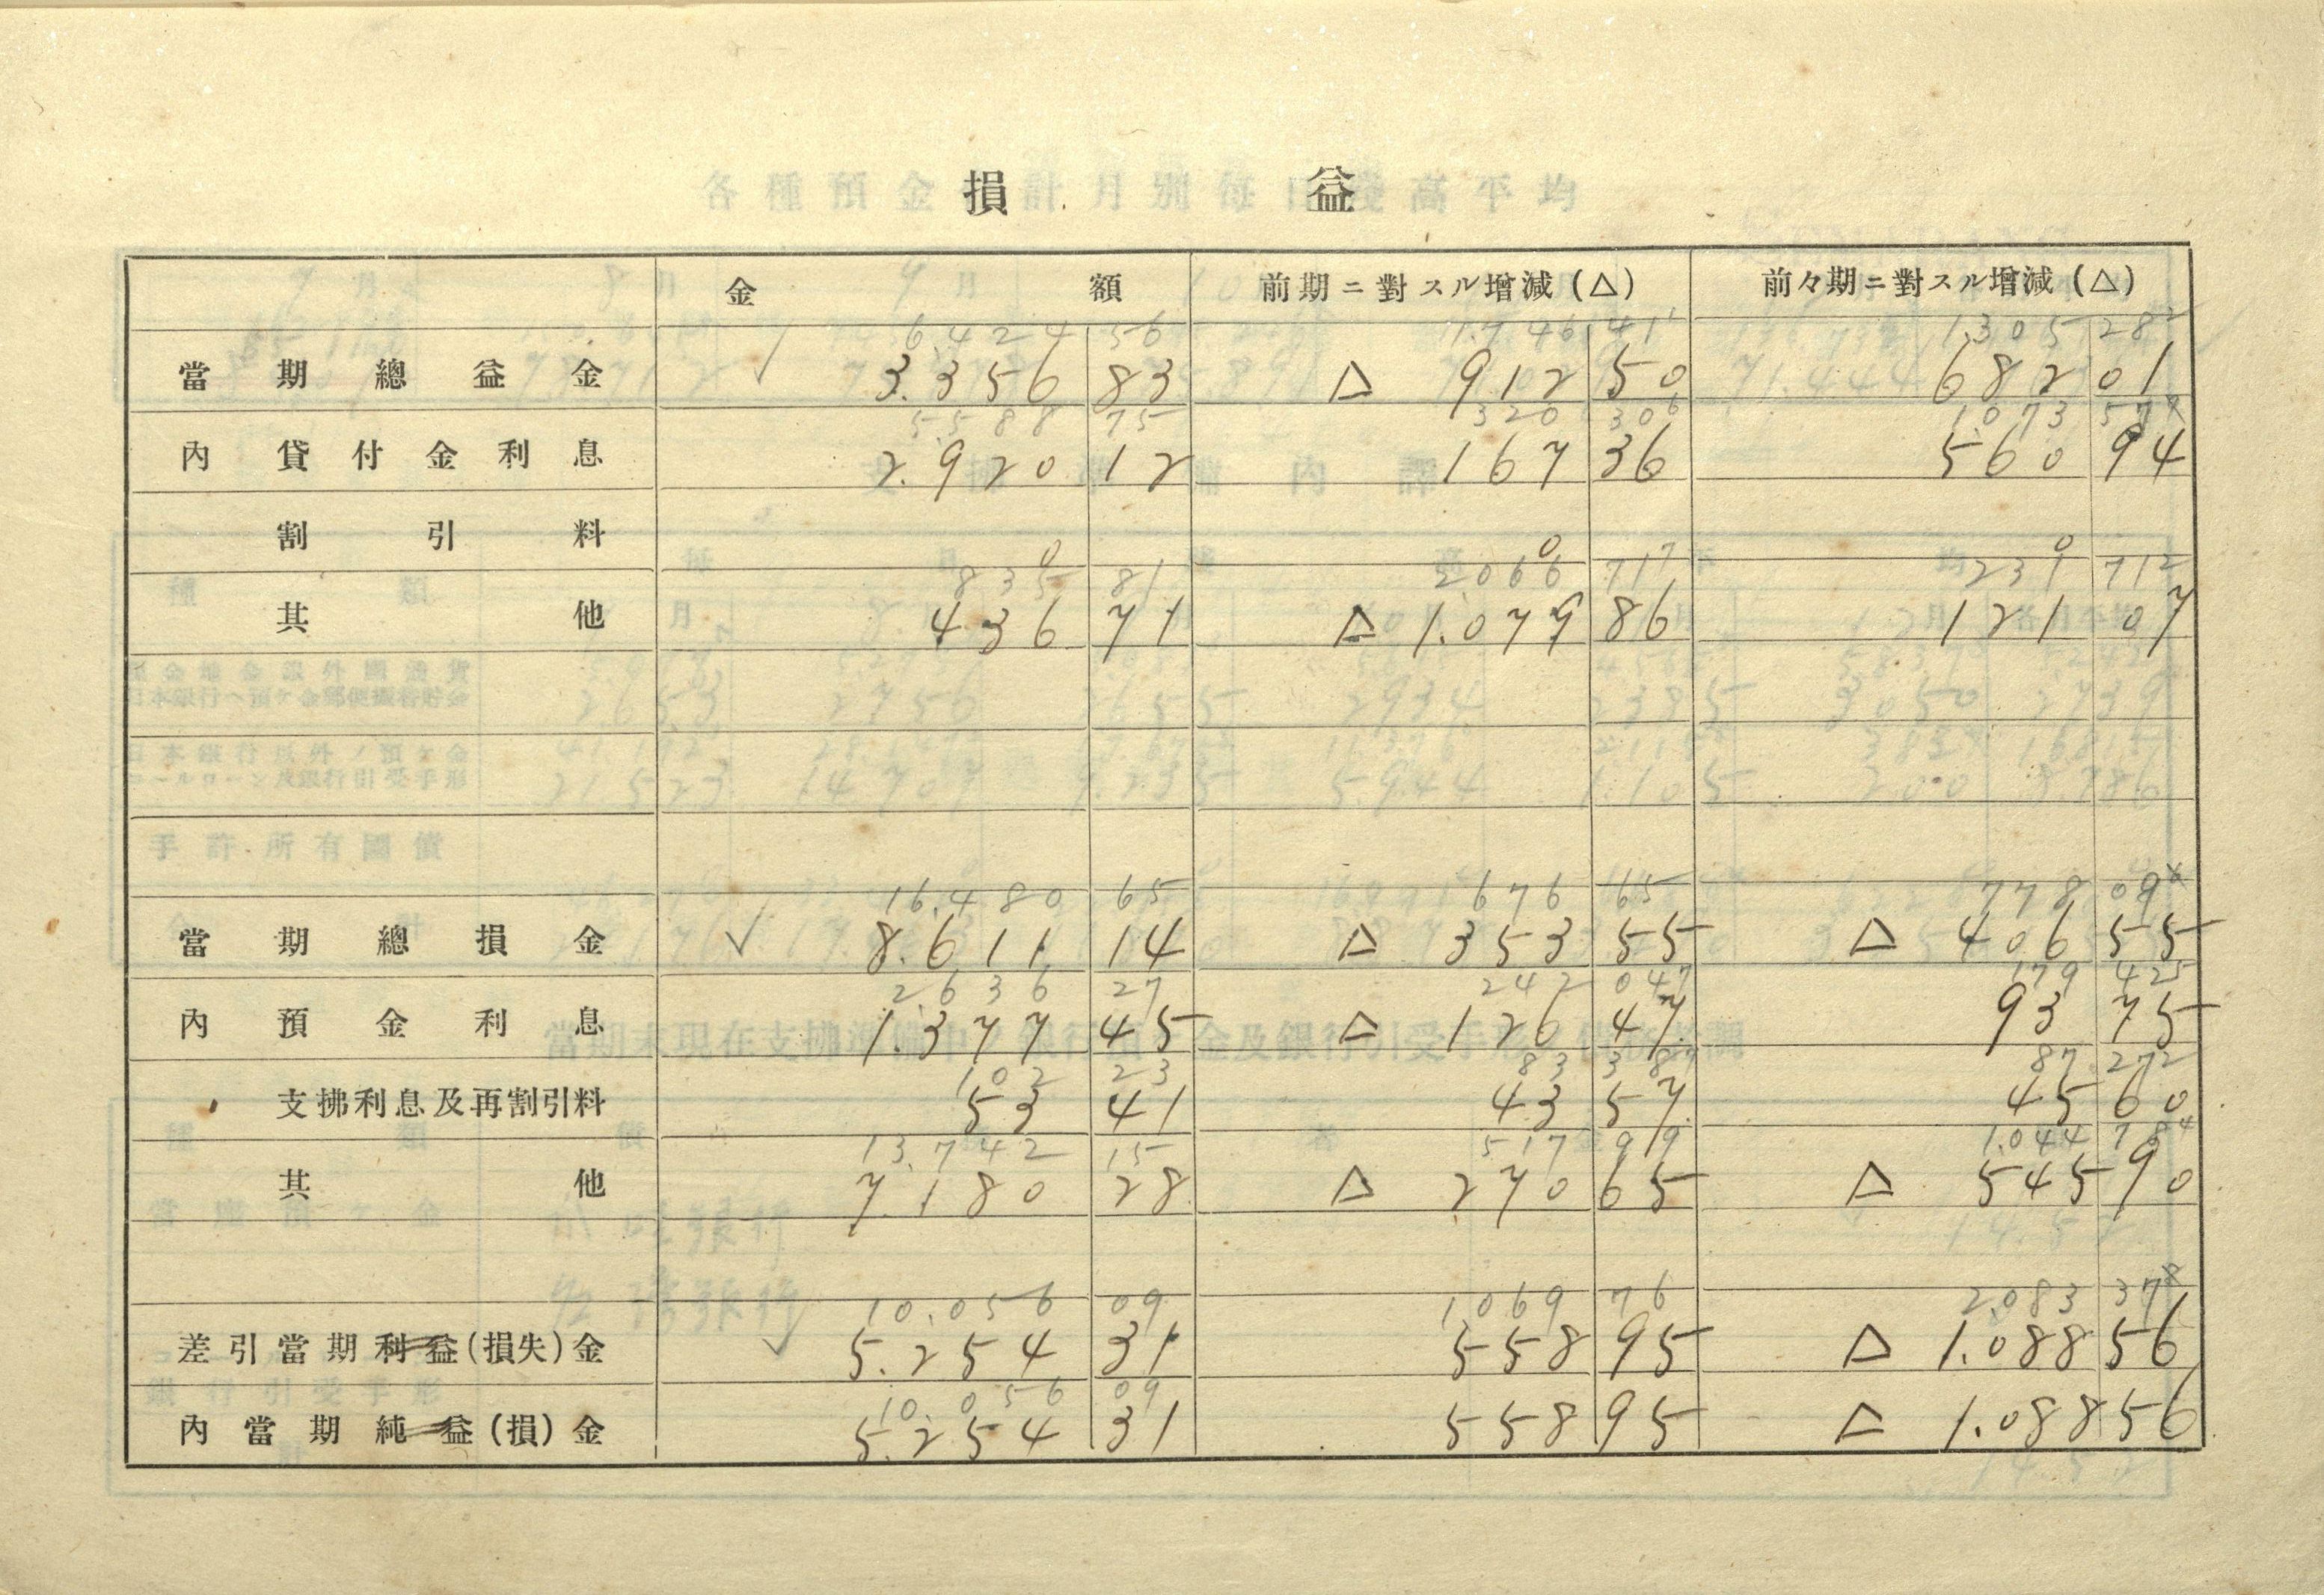 損 益
金 額 前期ニ對スル增減(△) 前々期ニ對スル增減(△)
6,424 56 1,746 41¹ 1,305 28²
當期總益金 ✓ 3.356 83 △ 912 50 682 01
5,588 75 320 30⁶ 1,073
內 貸付金利息 2.920 12 167 36 560 94
割引料
0 0 0
835 81 2066 71⁷ 231 71²
其他 436 71 △ 1.079 86 121 07
16,480 65 676 65 778 09
當期總損金 ✓ 8.611 14 △ 353 55 △ 406 55
2,636 27 242 04⁷ 179 42⁵
內 預金利息 1.377 45 △ 126 47 93 75
102 23 83 38⁷ 87 27²
支拂利息及再割引料 53 41 43 57 45 60
13,742 15 517 99 1,044 78⁴
其他 7.180 28 △ 270 65 △ 545 90
10,056 09 1069 76 2,083 37⁸
差引當期利益(損失)金 ✓ 5.254 31 558 95 △ 1.088 56
10,056 09
內當期純益(損)金 5.254 31 558 95 △ 1.088 56